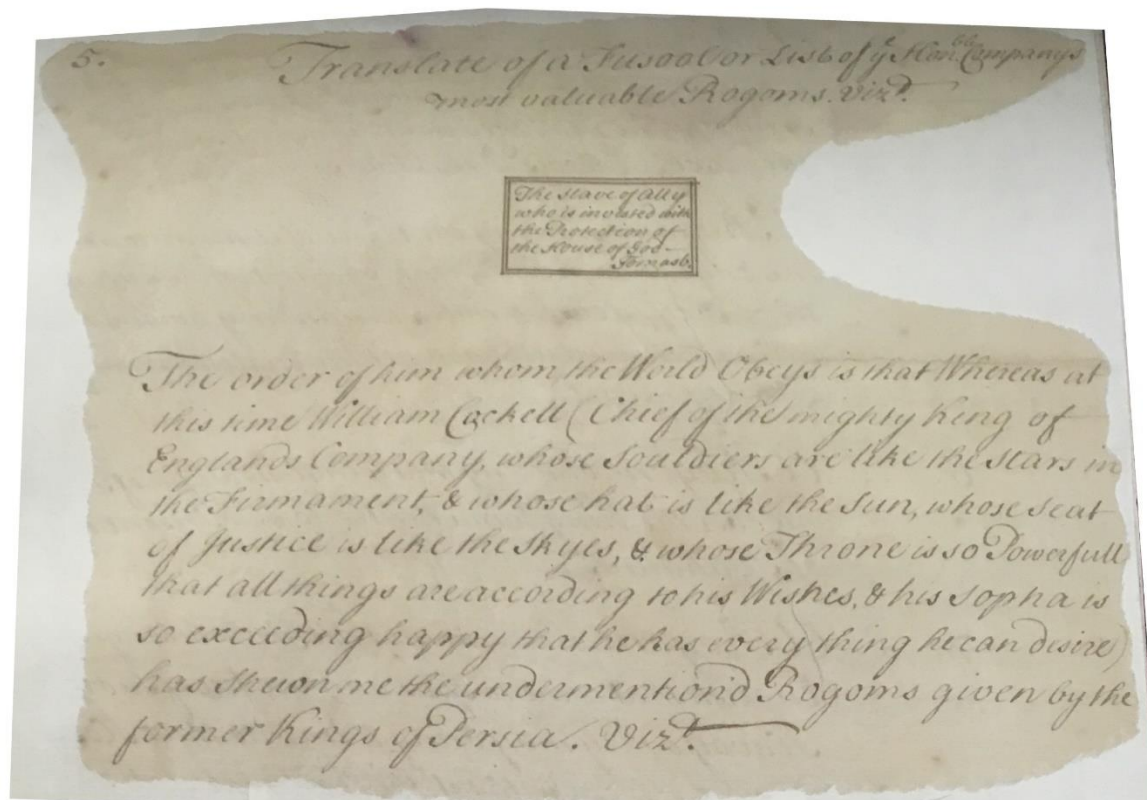 5.
Translate of a Fusool or List of yͤ Honᵇˡᵉ Companys
most valuable Rogoms. Vizᵗ.
The Slave of Ally
who is invested with
the Protection of
the House of God —
Tomasb.
The order of him whom the World Obeys is that Whereas at
this time William Cockell (Chief of the mighty King of
Englands Company, whose Souldiers are like the Stars in
the Firmament, & whose hat is like the Sun, whose Seat
of Justice is like the Skyes, & whose Throne is so Powerfull
that all things are according to his Wishes, & his Sopha is
so exceeding happy that he has every thing he can desire)
has shewn me the undermention'd Rogoms given by the
former Kings of Persia. Vizᵗ.